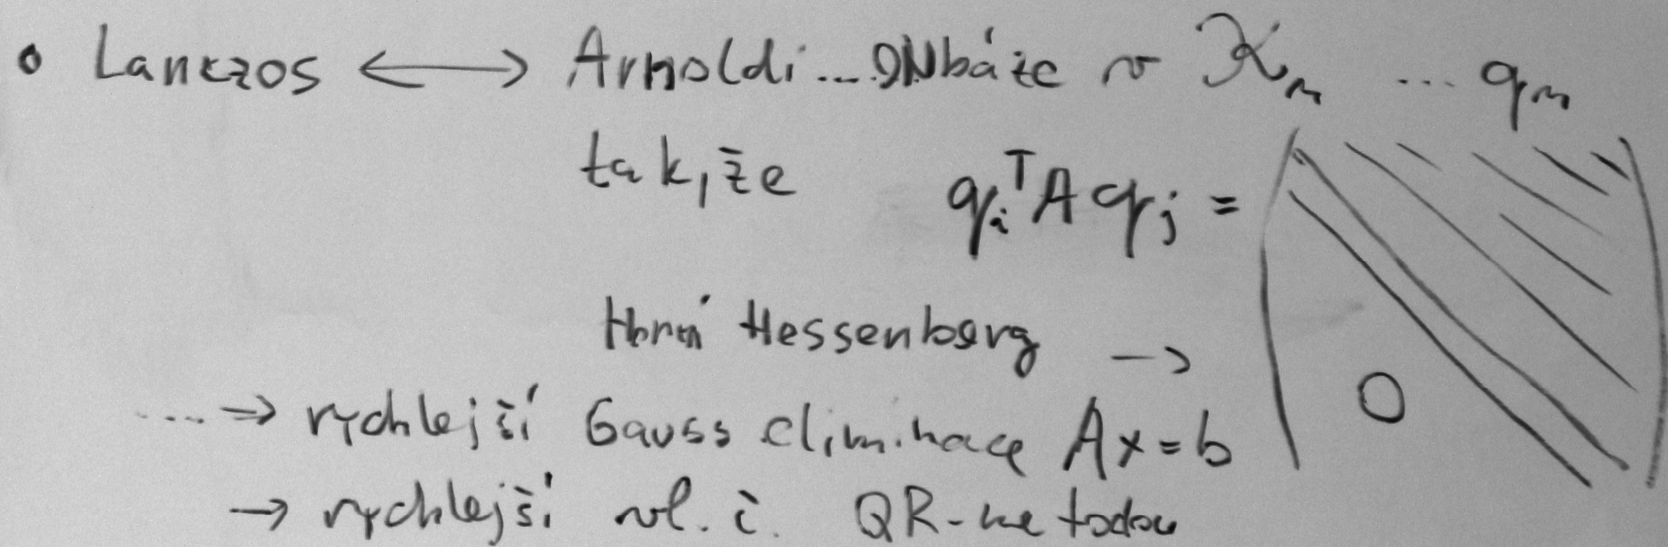 • Lanczos ⟷ Arnoldi ... ONbáze v 𝒦ₙ ... qₘ
tak, že qᵢᵀA qⱼ =
Horní Hessenberg →
0
...→ rychlejší Gauss eliminace Ax=b
→ rychlejší vl. č. QR-metodou